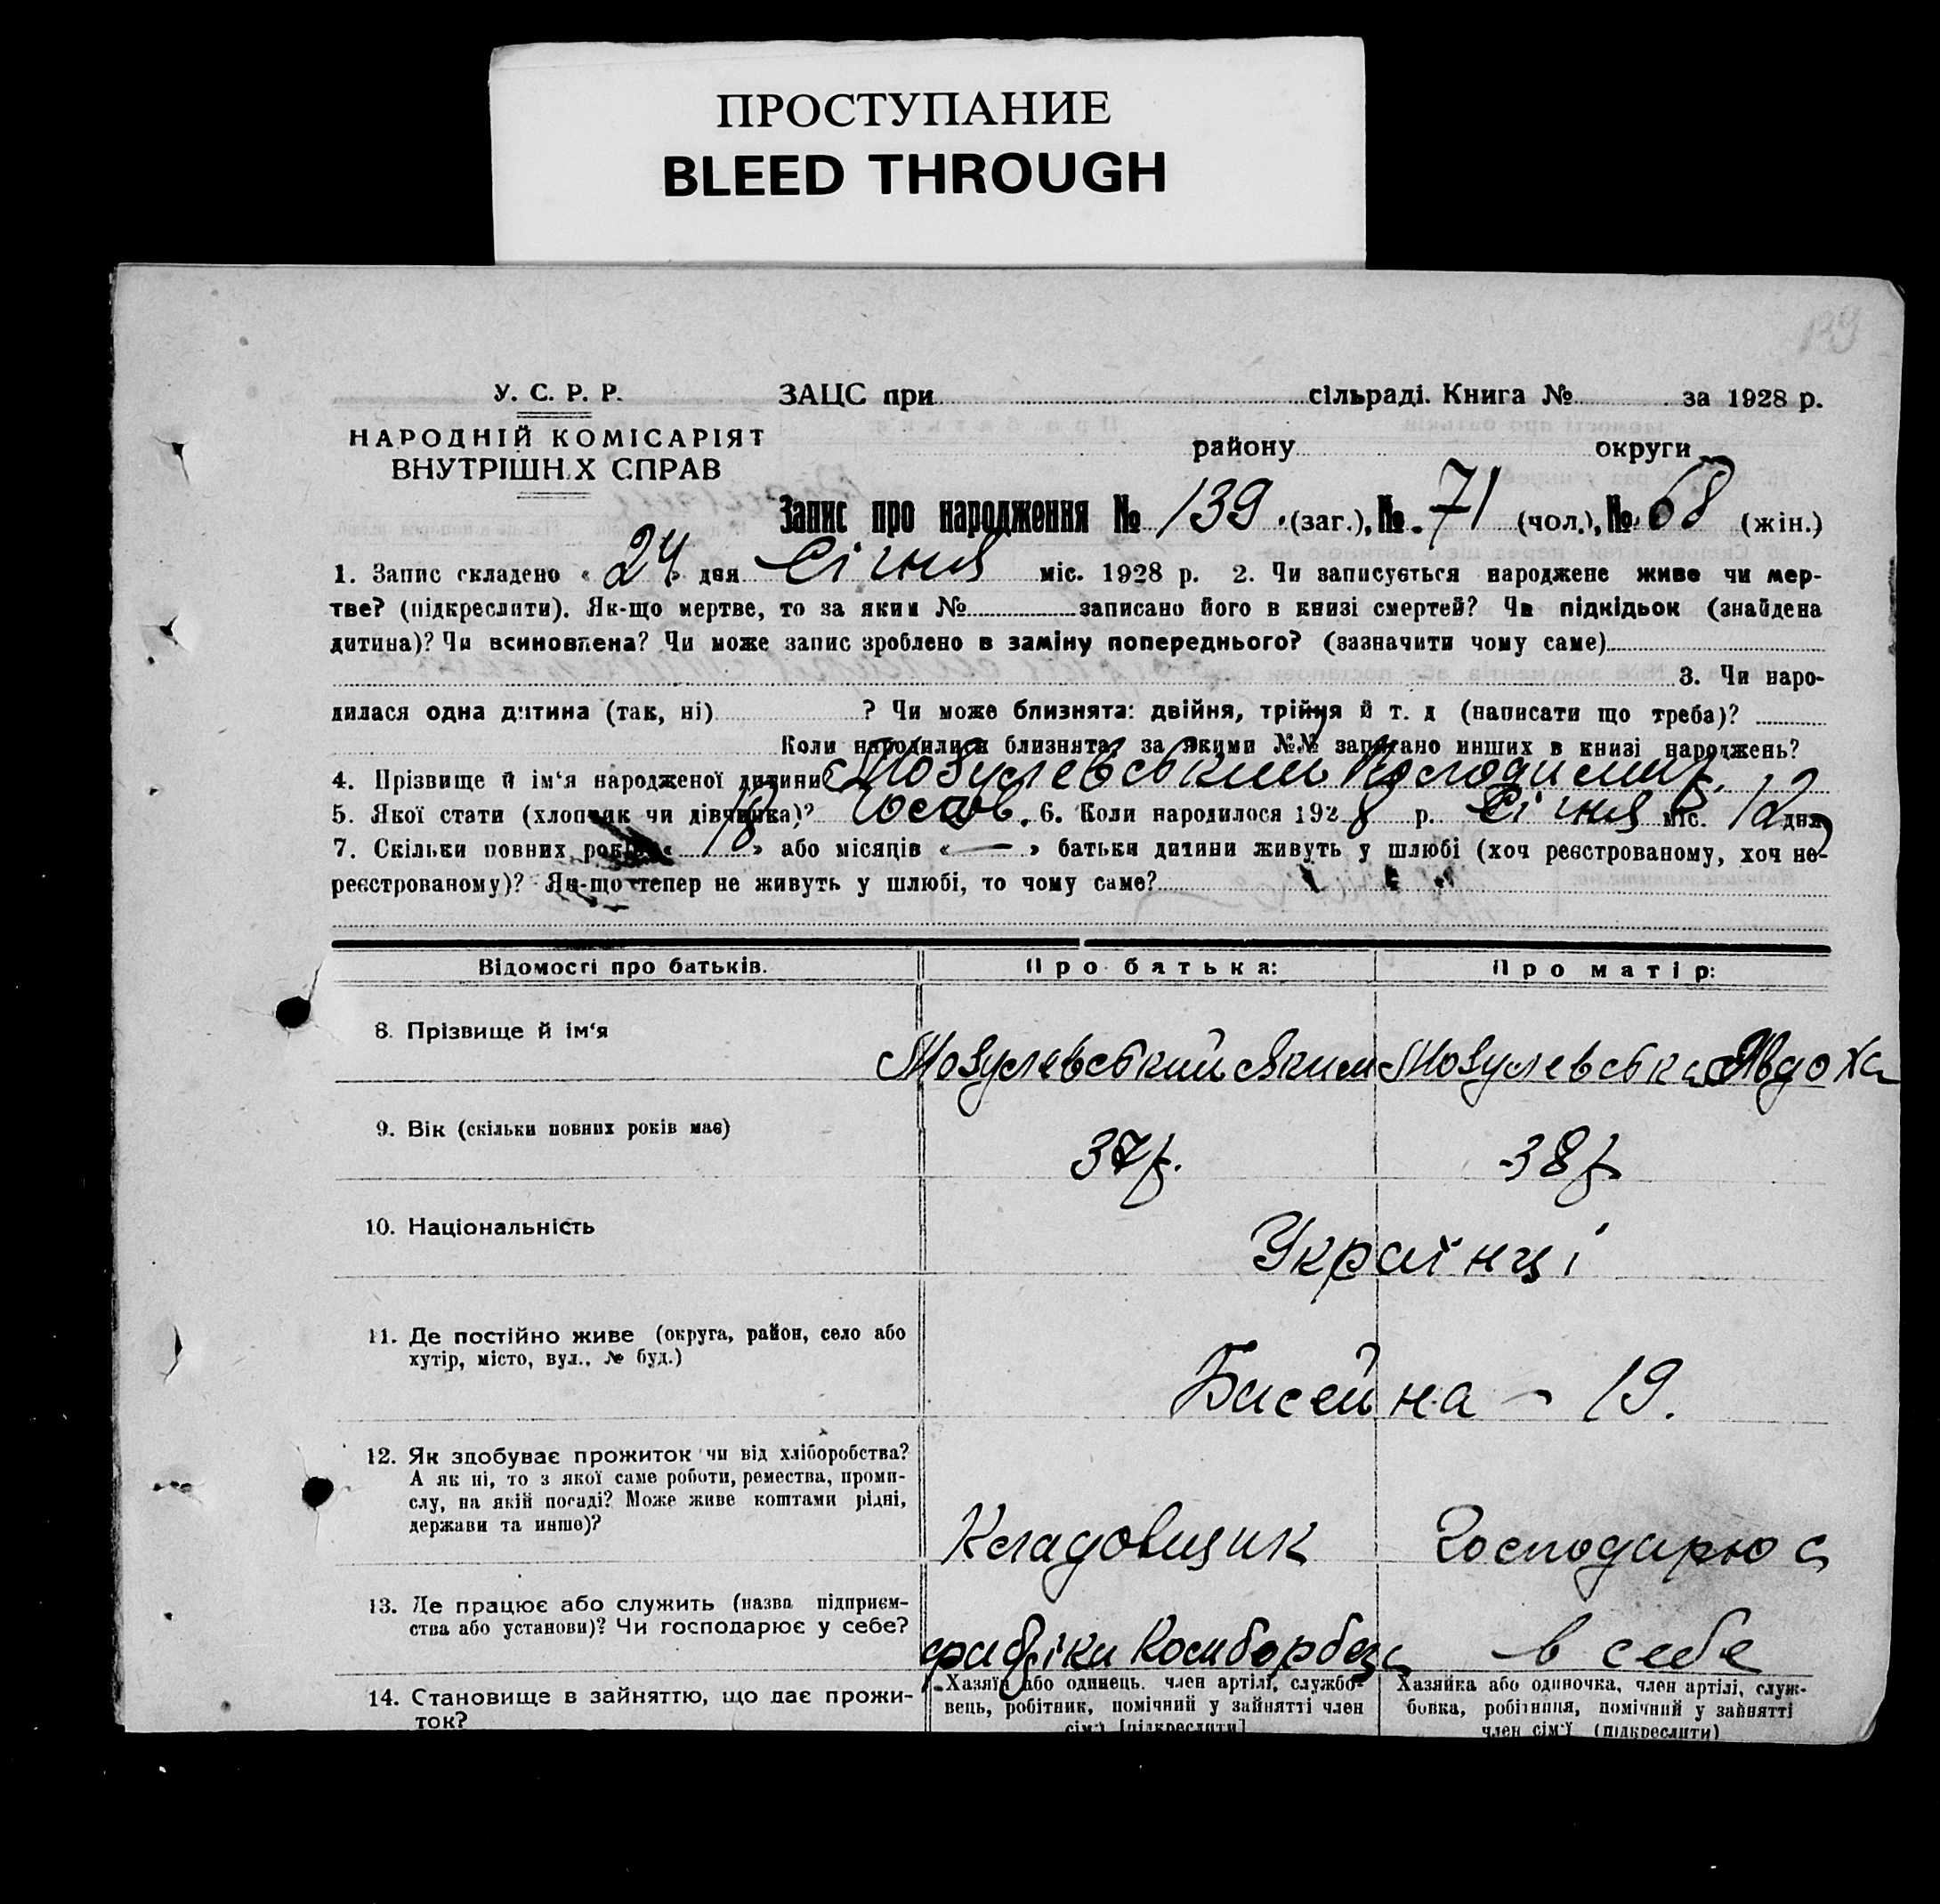 ПРОСТУПАНИЕ
BLEED THROUGH
139
У. С. Р. Р. ЗАЦС при сільраді. Книга № за 1928 р.
НАРОДНІЙ КОМІСАРІЯТ
ВНУТРІШН.Х СПРАВ
району округи
Запис про народження № 139 (заг.), № 71 (чол.), № 68 (жін.)
1. Запис складено « 24 » дня Січня міс. 1928 р. 2. Чи записується народжене живе чи мер-
тве? (підкреслити). Як-що мертве, то за яким № записано його в книзі смертей? Чи підкідьок (знайдена
дитина)? Чи всиновлена? Чи може запис зроблено в заміну попереднього? (зазначити чому саме)
3. Чи наро-
дилася одна дитина (так, ні) ? Чи може близнята: двійня, трійня й т. д (написати що треба)?
Коли народилися близнята, за якими №№ записано инших в книзі народжень?
4. Прізвище й ім'я народженої дитини Мовулевський Володимир.
5. Якої стати (хлопчик чи дівчинка)? Чолов. 6. Коли народилося 1928 р. Січня міс. 12 дня
7. Скільки повних років « 18 » або місяців « — » батьки дитини живуть у шлюбі (хоч реєстрованому, хоч не-
реєстрованому)? Як-що тепер не живуть у шлюбі, то чому саме?
Відомості про батьків. Про батька: Про матір:
8. Прізвище й ім'я Мовулевський Яким Мовулевська Явдоха
9. Вік (скільки повних років має) 37 р. 38 р.
10. Національність Українці
11. Де постійно живе (округа, район, село або
хутір, місто, вул., № буд.)
Басейна - 19.
12. Як здобуває прожиток чи від хліборобства?
А як ні, то з якої саме роботи, ремества, проми-
слу, на якій посаді? Може живе коштами рідні,
держави та инше)?
Кладовщик Господарює
13. Де працює або служить (назва підприєм-
ства або установи)? Чи господарює у себе?
фабріки Комборбеза в себе
14. Становище в зайняттю, що дає прожи-
ток?
Хазяїн або одинець. член артілі, службо-
вець, робітник, помічний у зайнятті член
сім'ї [підкреслити]
Хазяйка або одиночка, член артілі, служ-
бовка, робітниця, помічний у зайнятті
член сім'ї (підкреслити)